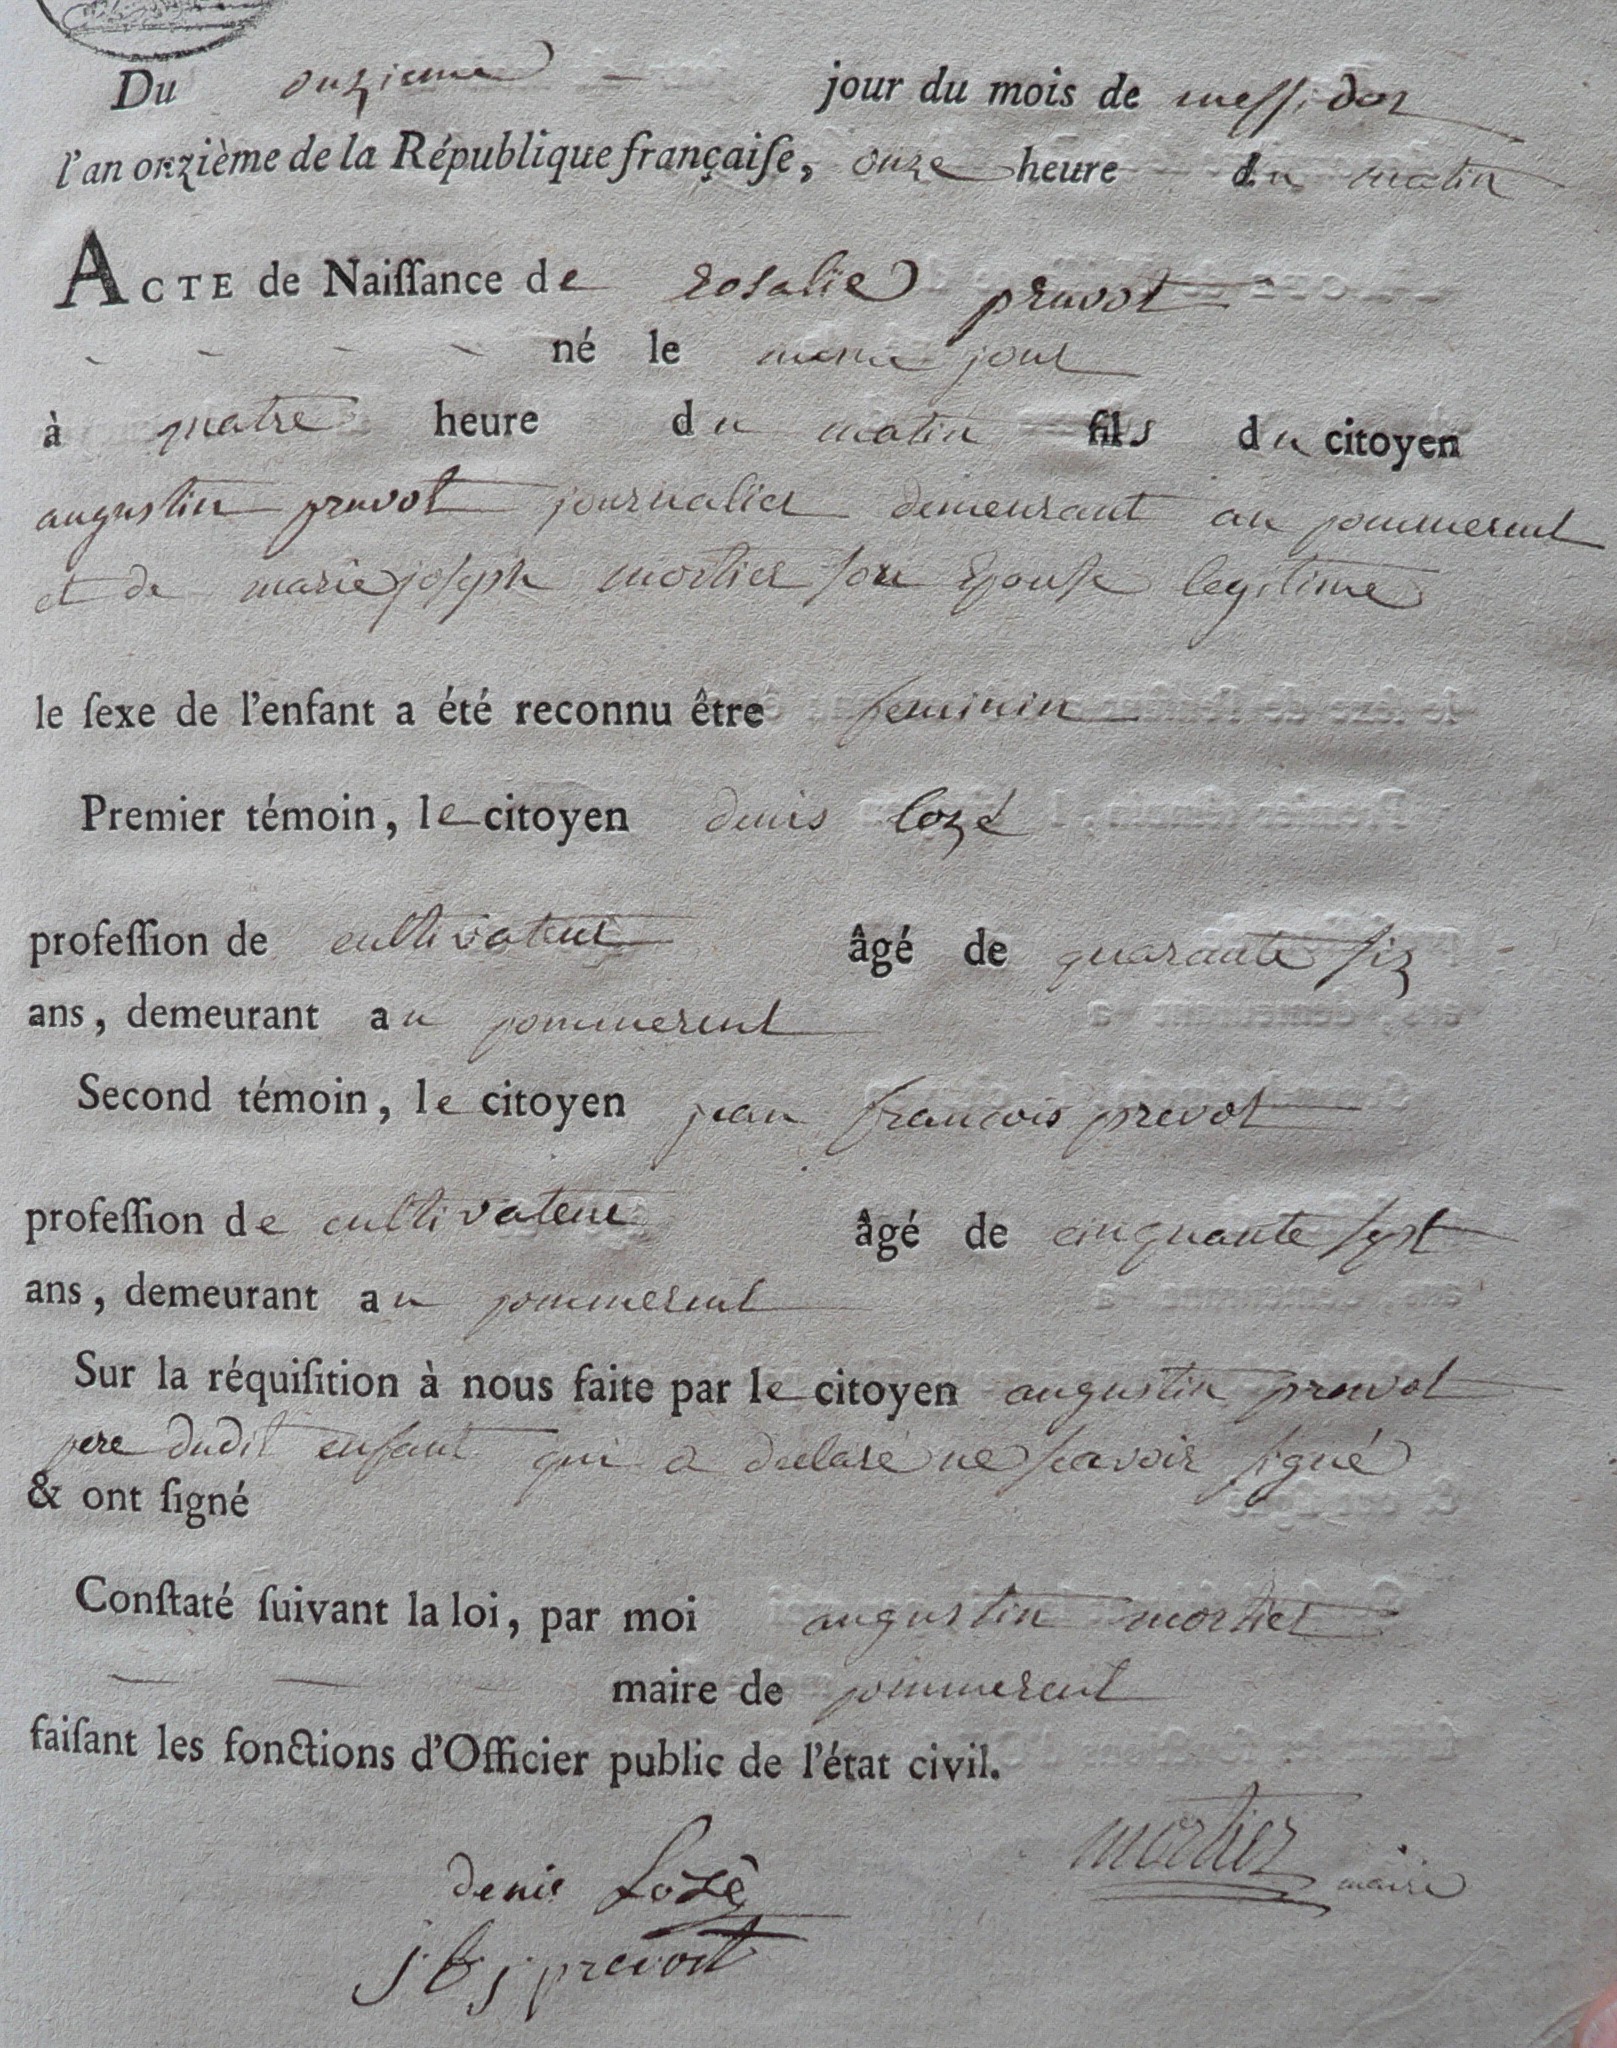 Du onzieme jour du mois de messidor
l'an onzième de la République françaiſe, onze heure du matin
ACTE de Naiſſance de rosalie pruvot
né le meme jour
à quatre heure du matin fils du citoyen
augustin pruvot journalier demeurant au pommereul
et de marie joseph mortier son Epouse legitime
le ſexe de l'enfant a été reconnu être feminin
Premier témoin, le citoyen denis lozé
profeſſion de cultivateur âgé de quarante siz
ans, demeurant au pommereul
Second témoin, le citoyen jean francois prevot
profeſſion de cultivateur âgé de cinquante sept
ans, demeurant au pommereul
Sur la réquiſition à nous faite par le citoyen augustin pruvot
pere dudit enfant qui a declaré ne scavoir signé
& ont ſigné
Conſtaté ſuivant la loi, par moi augustin mortier
maire de pommereul
faiſant les fonctions d'Officier public de l'état civil.
mortier maire
denis Lozé
j f j prevot